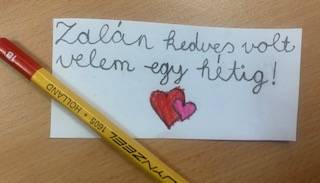 Zalán kedves volt
velem egy hétig!
HOLLAND 1605